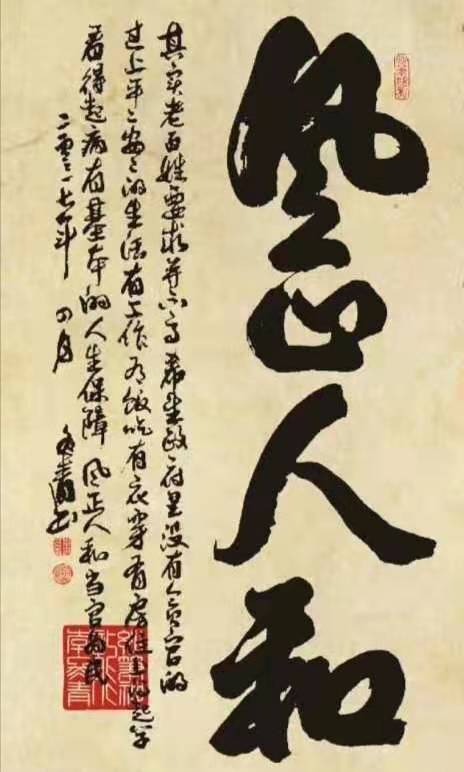 风正人和
其实老百姓要求并不高希望政府里没有贪官的
过上平〻安〻的生活有工作有饭吃有衣穿有房住上的起学
看得起病有基本的人生保障 风正人和当官为民
二零一七年 四月
书